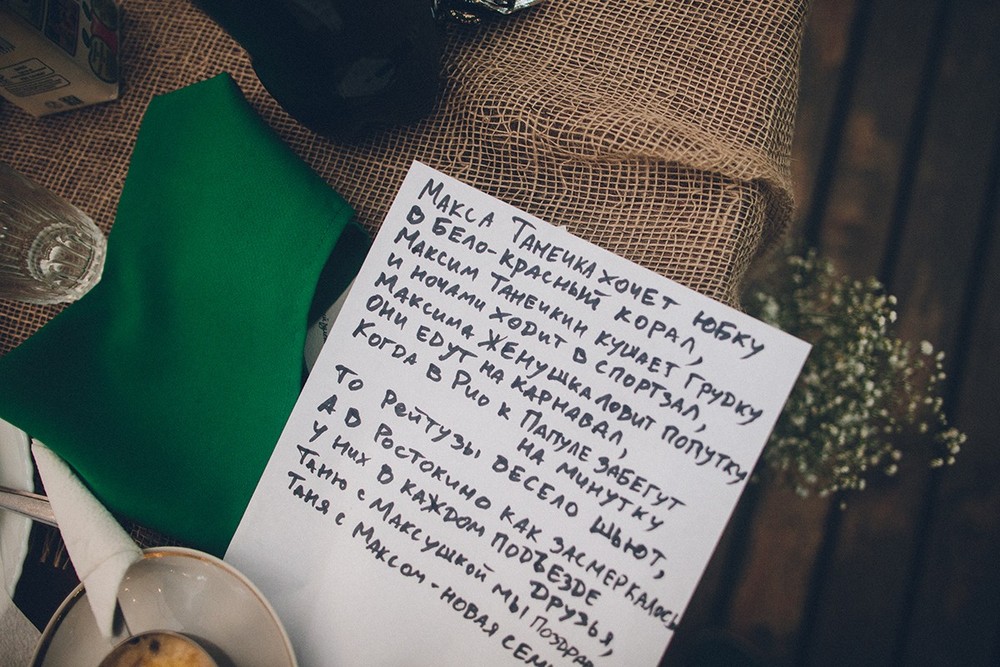 МАКСА ТАНЕЧКА ХОЧЕТ ЮБКУ
В БЕЛО-КРАСНЫЙ КОРАЛ,
МАКСИМ ТАНЕЧКИН КУШАЕТ ГРУДКУ
И НОЧАМИ ХОДИТ В СПОРТЗАЛ,
МАКСИМА ЖЕНУШКА ЛОВИТ ПОПУТКУ
ОНИ ЕДУТ НА КАРНАВАЛ,
КОГДА В РИО К ПАПУЛЕ ЗАБЕГУТ
НА МИНУТКУ
ТО РЕЙТУЗЫ ВЕСЕЛО ШЬЮТ,
А В РОСТОКИНО КАК ЗАСМЕРКАЛОСЬ
У НИХ В КАЖДОМ ПОДЪЕЗДЕ
ДРУЗЬЯ,
ТАНЮ С МАКСУШКОЙ МЫ ПОЗДРАВ
ТАНЯ С МАКСОМ - НОВАЯ СЕМ